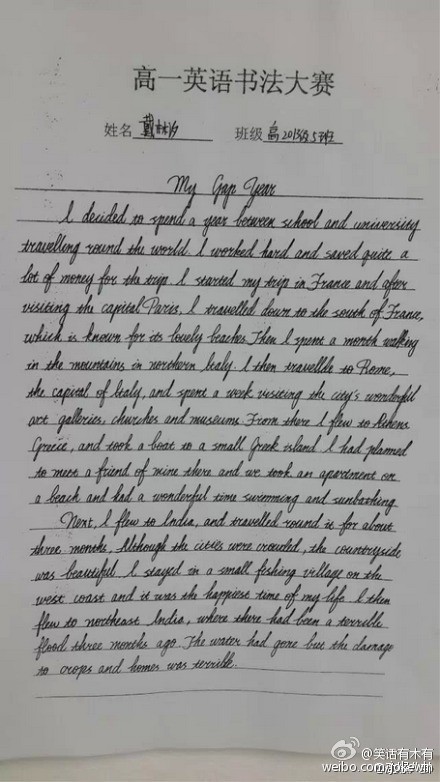 高一英语书法大赛
姓名 戴林汐 班级 高2013级5班
My Gap Year
I decided to spend a year between school and university
travelling round the world. I worked hard and saved quite a
lot of money for the trip. I started my trip in France and after
visiting the capital Paris, I travelled down to the south of France,
which is known for its lovely beaches. Then I spent a month walking
in the mountains in northern Italy. I then travelld to Rome,
the capital of Italy, and spent a week visiting the city's wonderful
art galleries, churches and museums. From there I flew to Athens
Greece, and took a boat to a small Greek island. I had planned
to meet a friend of mine there and we took an apartment on
a beach and had a wonderful time swimming and sunbathing
Next, I flew to India, and travelled round it for about
three months. Although the cities were crowded, the countryside
was beautiful. I stayed in a small fishing village on the
west coast and it was the happiest time of my life. I then
flew to northeast India, where there had been a terrible
flood three months ago. The water had gone but the damage
to crops and homes was terrible.
@笑话有木有
weibo.com/